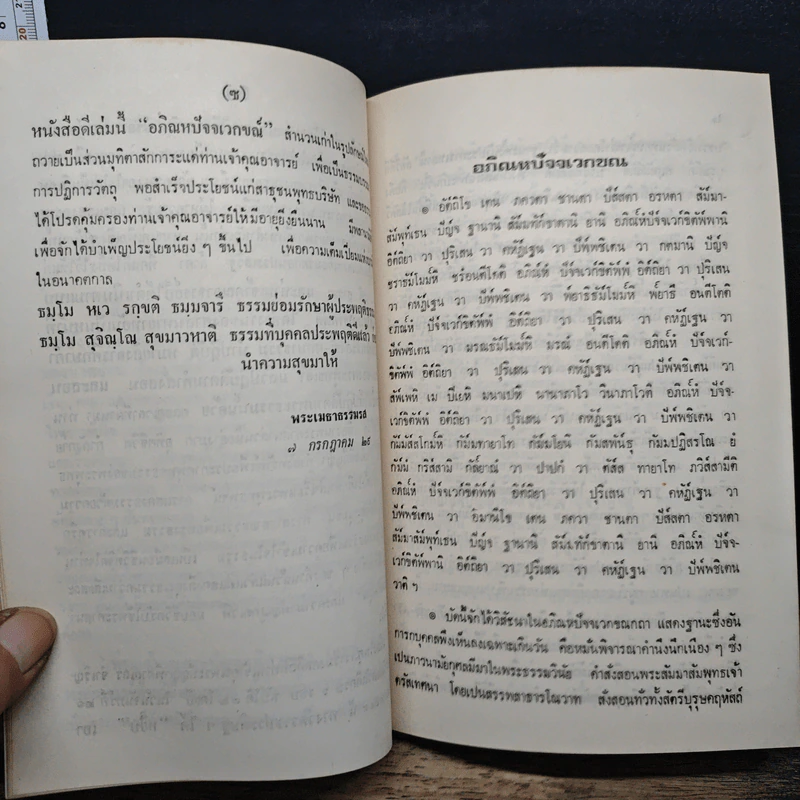 (ซ)
หนังสือดีเล่มนี้ “อภิณหปัจจเวกขณ์” สำนวนเก่าในรูปลักษณ์
ถวายเป็นส่วนมุทิตาสักการะแด่ท่านเจ้าคุณอาจารย์ เพื่อเป็นธรรม
การปฏิการวัตถุ พอสำเร็จประโยชน์แก่สาธุชนพุทธบริษัท และ
ได้โปรดคุ้มครองท่านเจ้าคุณอาจารย์ให้มีอายุยิ่งยืนนาน
เพื่อจักได้บำเพ็ญประโยชน์ยิ่ง ๆ ขึ้นไป เพื่อความเต็มเปี่ยม
ในอนาคตกาล
ธมฺโม หเว รกฺขติ ธมฺมจารึ ธรรมย่อมรักษาผู้ประพฤติธรรม
ธมฺโม สุจิณฺโณ สุขมาวหาติ ธรรมที่บุคคลประพฤติดีแล้ว
นำความสุขมาให้
พระเมธาธรรมรส
๗ กรกฎาคม ๒๙
อภิณหปัจจเวกขณ
๏ อัตถิโข เตน ภควตา ชานตา ปัสสตา อรหตา สัมมา-
สัมพุทเธน ปัญจ ฐานานิ สัมมทักขาตานิ ยานิ อภิณ์หํ ปัจจเวก์ขิตัพพานิ
อิต์ถิยา วา ปุริเสน วา คหัฏ์เฐน วา ปัพ์พชิเตน วา กตมานิ ปัญ์จ
ชราธัม์โมม์หิ ชรํอนตีโตติ อภิณ์หํ ปัจ์จเวก์ขิตัพ์พํ อิต์ถิยา วา ปุริเสน
วา คหัฏ์เฐน วา ปัพ์พชิเตน วา พ์ยาธิธัม์โมม์หิ พ์ยาธึ อนตีโตติ
อภิณ์หํ ปัจ์จเวก์ขิตัพ์พํ อิต์ถิยา วา ปุริเสน วา คหัฏ์เฐน วา
ปัพ์พชิเตน วา มรณธัม์โมม์หิ มรณํ อนตีโตติ อภิณ์หํ ปัจ์จเวก์-
ขิตัพ์พํ อิต์ถิยา วา ปุริเสน วา คหัฏ์เฐน วา ปัพ์พชิเตน วา
สัพ์เพหิ เม ปิเยหิ มนาเปหิ นานาภาโว วินาภาโวติ อภิณ์หํ ปัจ์จ-
เวก์ขิตัพ์พํ อิต์ถิยา วา ปุริเสน วา คหัฏ์เฐน วา ปัพ์พชิเตน วา
กัม์มัส์สโกม์หิ กัม์มทายาโท กัม์มโยนิ กัมสพันธุ กัมมปฏิสรโณ ยํ
กัม์มํ กริส์สามิ กัล์ยาณํ วา ปาปกํ วา ตัส์ส ทายาโท ภวิส์สามีติ
อภิณ์หํ ปัจ์จเวก์ขิตัพ์พํ อิต์ถิยา วา ปุริเสน วา คหัฏ์เฐน วา
ปัพ์พชิเตน วา อิมานิโข เตน ภควา ชานตา ปัส์สตา อรหตา
สัม์มาสัม์พุท์เธน ปัญ์จ ฐานานิ สัม์มทัก์ขาตานิ ยานิ อภิณ์หํ ปัจ์จ-
เวก์ขิตัพ์พานิ อิต์ถิยา วา ปุริเสน วา คหัฏ์เฐน วา ปัพ์พชิเตน
วาติ ฯ
๏ บัดนี้จักได้วิสัชนาในอภิณหปัจจเวกขณกถา แสดงฐานะซึ่งอัน
การกบุคคลพึงเห็นลงเฉพาะเกินวัน คือหมั่นพิจารณาคำนึงนึกเนือง ๆ ซึ่ง
เปนภาวนามัยกุศลมีมาในพระธรรมวินัย คำสั่งสอนพระสัมมาสัมพุทธเจ้า
ตรัสเทศนา โดยเปนสรรพสาธารโณวาท สั่งสอนทั่วทั้งสัตรีบุรุษคฤหัสถ์